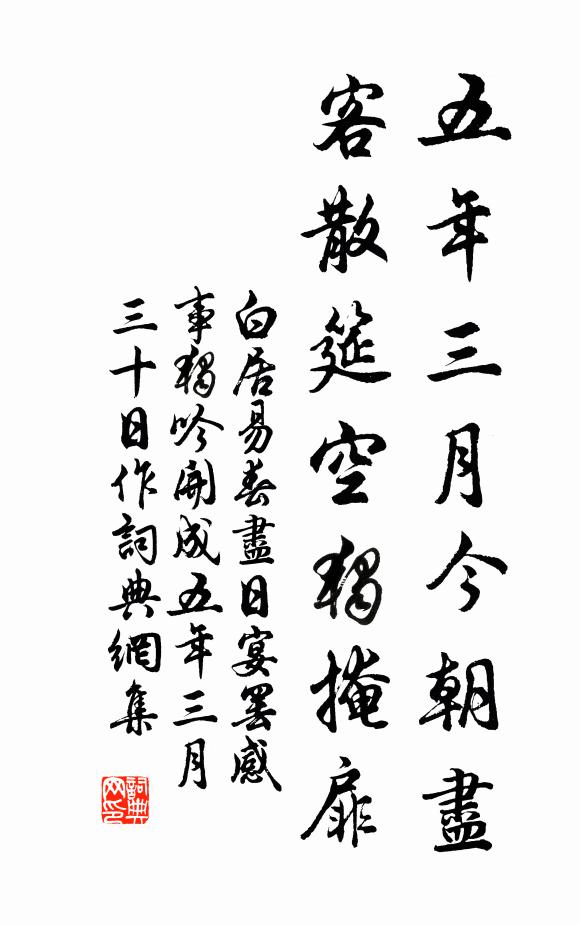 五年三月今朝盡
客散筵空獨掩扉
白居易春盡日宴罷感
事獨吟開成五年三月
三十日作詞典網集
詞典
网印